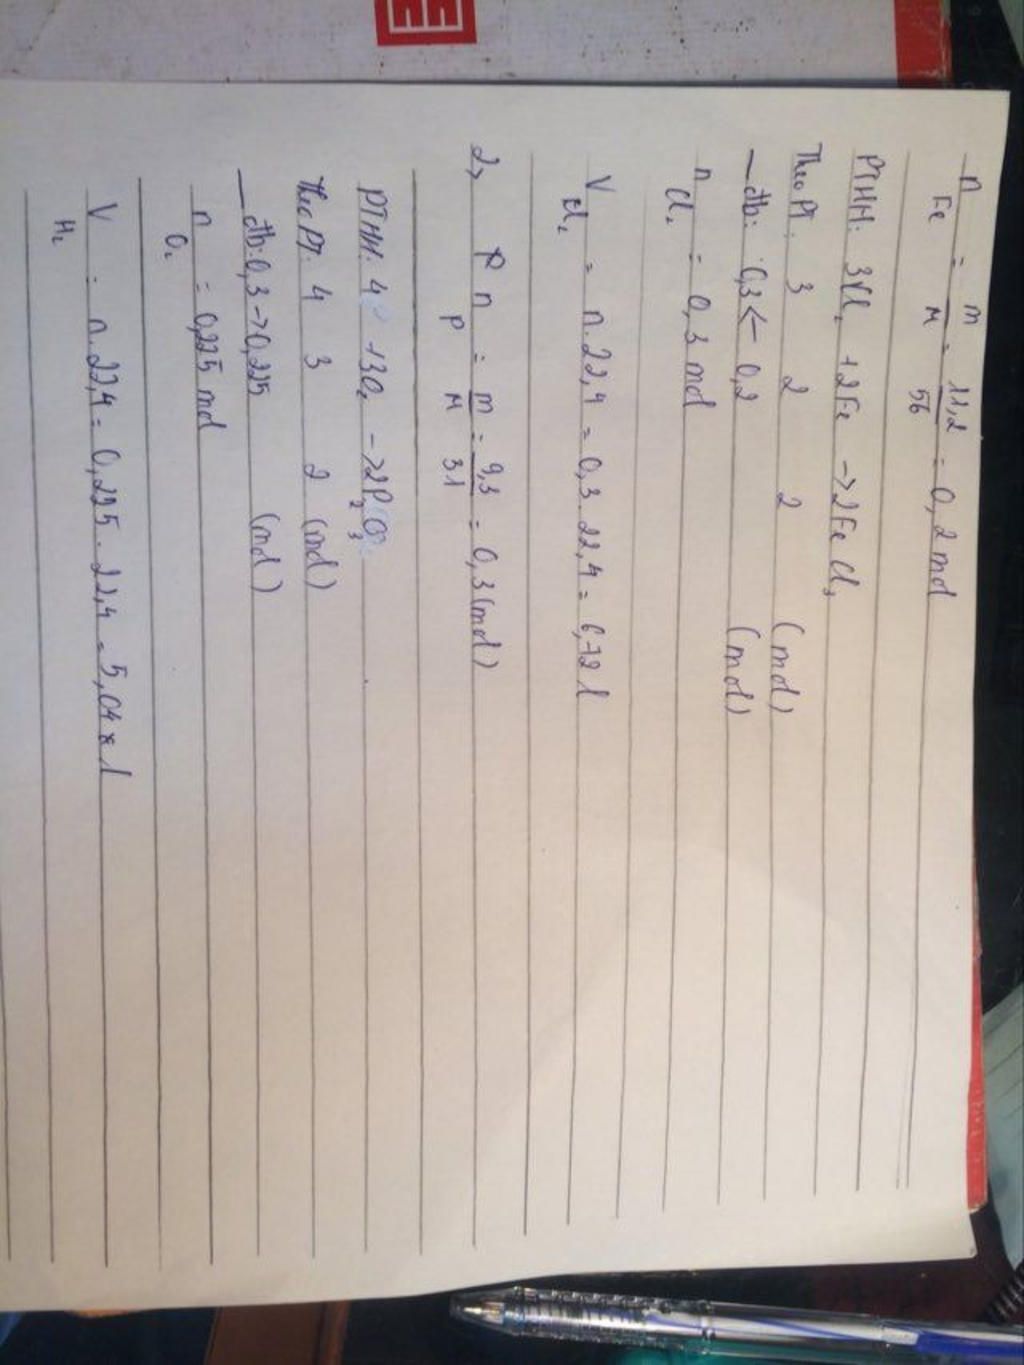 n Fe = m/M = 11,2/56 = 0,2 mol
PTHH: 3Cl₂ +2Fe -> 2FeCl₃
Theo PT: 3 2 2 (mol)
_ đb: 0,3 <- 0,2 (mol)
n Cl₂ = 0,3 mol
V Cl₂ = n.22,4 = 0,3.22,4 = 6,72 l
2> P n P = m/M = 9,3/31 = 0,3 (mol)
PTHH: 4 +3O₂ -> 2P₂O₃
Theo PT: 4 3 2 (mol)
_ đb: 0,3 -> 0,225 (mol)
n O₂ = 0,225 mol
V H₂ = n.22,4 = 0,225.22,4 = 5,04 l